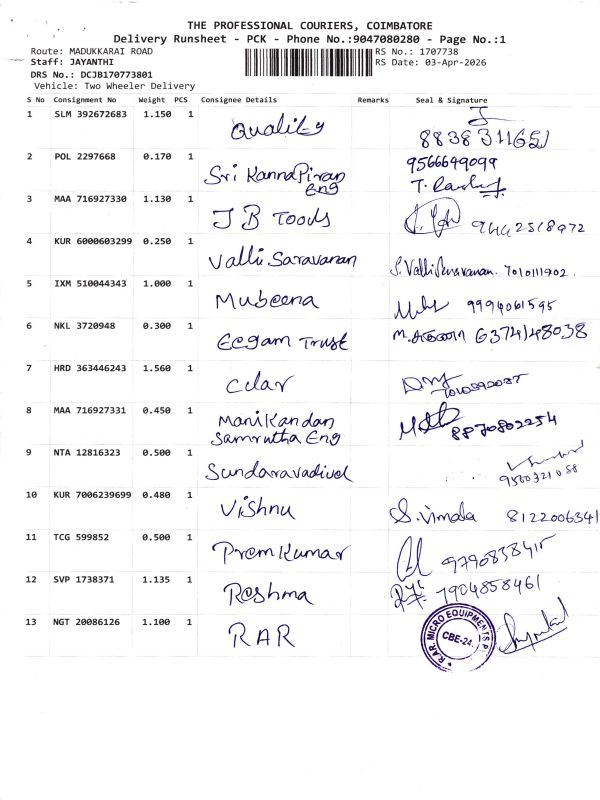 THE PROFESSIONAL COURIERS, COIMBATORE
Delivery Runsheet - PCK - Phone No.:9047080280 - Page No.:1
Route: MADUKKARAI ROAD
RS No.: 1707738
Staff: JAYANTHI
RS Date: 03-Apr-2026
DRS No.: DCJB170773801
Vehicle: Two Wheeler Delivery
S No Consignment No Weight PCS Consignee Details Remarks Seal & Signature
1 SLM 392672683 1.150 1 Quality
2 POL 2297668 0.170 1 Sri KannaPiran Eng 9566649099
3 MAA 716927330 1.130 1 J B Tools
4 KUR 6000603299 0.250 1 Valli Saravanan S. Valli Saravanan. 7010111902.
5 IXM 510044343 1.000 1 Mubeena 9994061595
6 NKL 3720948 0.300 1 Eegam Trust 6374148038
7 HRD 363446243 1.560 1
8 MAA 716927331 0.450 1 Manikandan Samrutha Eng 8870802254
9 NTA 12816323 0.500 1 Sundaravadivel
10 KUR 7006239699 0.480 1 Vishnu S. Vimala 8122006341
11 TCG 599852 0.500 1 Prem Kumar
12 SVP 1738371 1.135 1 Reshma 7904858461
13 NGT 20086126 1.100 1 RAR R.A.R. MICRO EQUIPMENTS P. CBE-24.